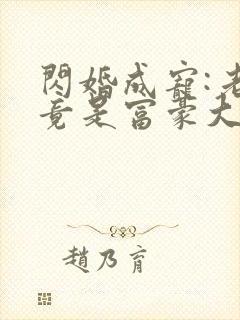 閃婚成寵:老
竟是富豪大
趙乃育